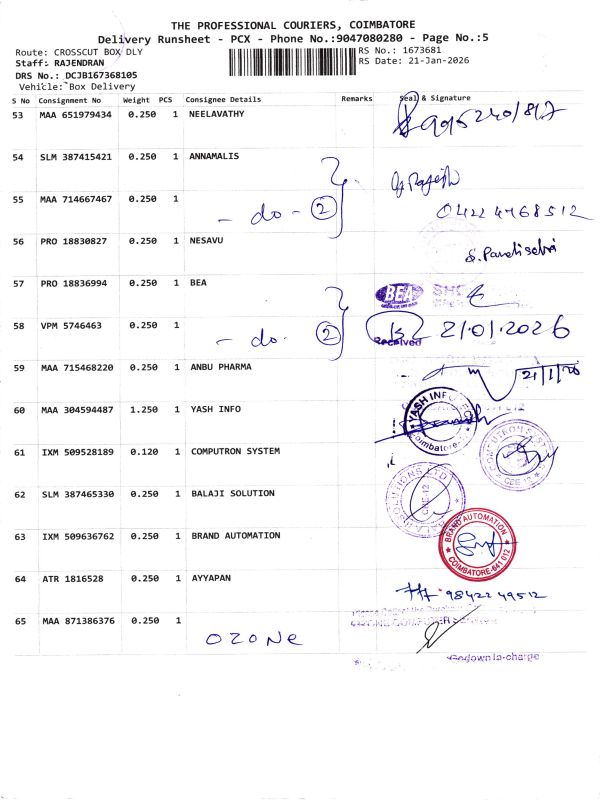 THE PROFESSIONAL COURIERS, COIMBATORE
Delivery Runsheet - PCX - Phone No.:9047080280 - Page No.:5
Route: CROSSCUT BOX DLY
RS No.: 1673681
Staff: RAJENDRAN
RS Date: 21-Jan-2026
DRS No.: DCJB167368105
Vehicle: Box Delivery
S No Consignment No Weight PCS Consignee Details Remarks Seal & Signature
53 MAA 651979434 0.250 1 NEELAVATHY
54 SLM 387415421 0.250 1 ANNAMALIS
55 MAA 714667467 0.250 1
- do - 2
04224468512
56 PRO 18830827 0.250 1 NESAVU
57 PRO 18836994 0.250 1 BEA BEA
58 VPM 5746463 0.250 1
- do - 2
Received
21.01.2026
59 MAA 715468220 0.250 1 ANBU PHARMA 21/1/26
60 MAA 304594487 1.250 1 YASH INFO
YASH INFO
Coimbatore-
61 IXM 509528189 0.120 1 COMPUTRON SYSTEM
CBE-12
62 SLM 387465330 0.250 1 BALAJI SOLUTION
CBE-12
63 IXM 509636762 0.250 1 BRAND AUTOMATION
BRAND AUTOMATION
COIMBATORE-641 012
64 ATR 1816528 0.250 1 AYYAPAN 9842249512
65 MAA 871386376 0.250 1
OZONE
Godown In-charge